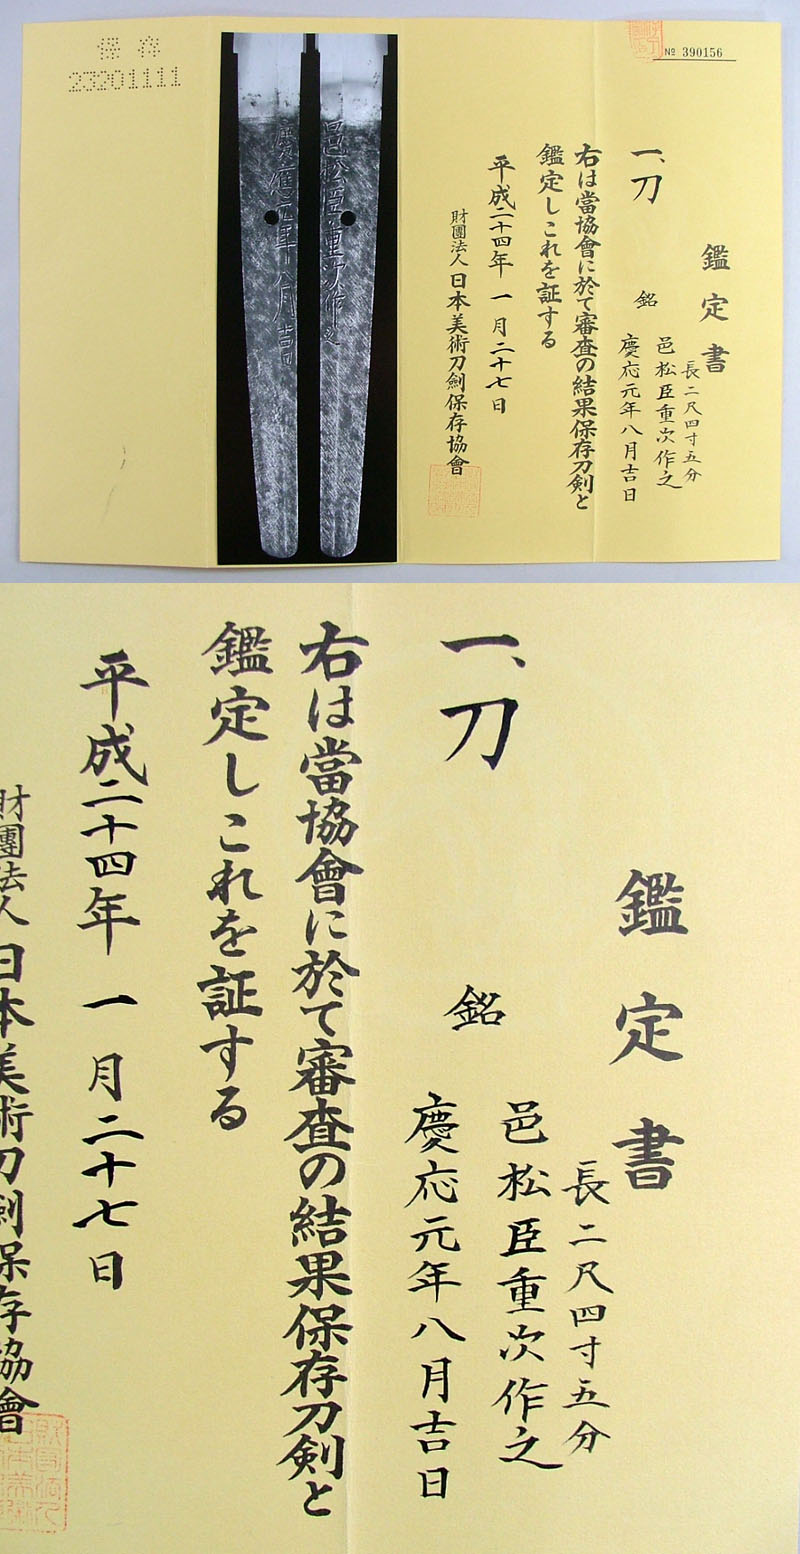 保存
23201111
邑松臣重次作之
慶應元年八月吉日
№ 390156
鑑定書
一、刀
長二尺四寸五分
銘
邑松臣重次作之
慶応元年八月吉日
右は當協會に於て審査の結果保存刀剣と
鑑定しこれを証する
平成二十四年 一月二十七日
財團法人 日本美術刀劍保存協會
鑑定書
一、刀
長二尺四寸五分
銘
邑松臣重次作之
慶応元年八月吉日
右は當協會に於て審査の結果保存刀剣と
鑑定しこれを証する
平成二十四年 一月二十七日
財團法人 日本美術刀劍保存協會